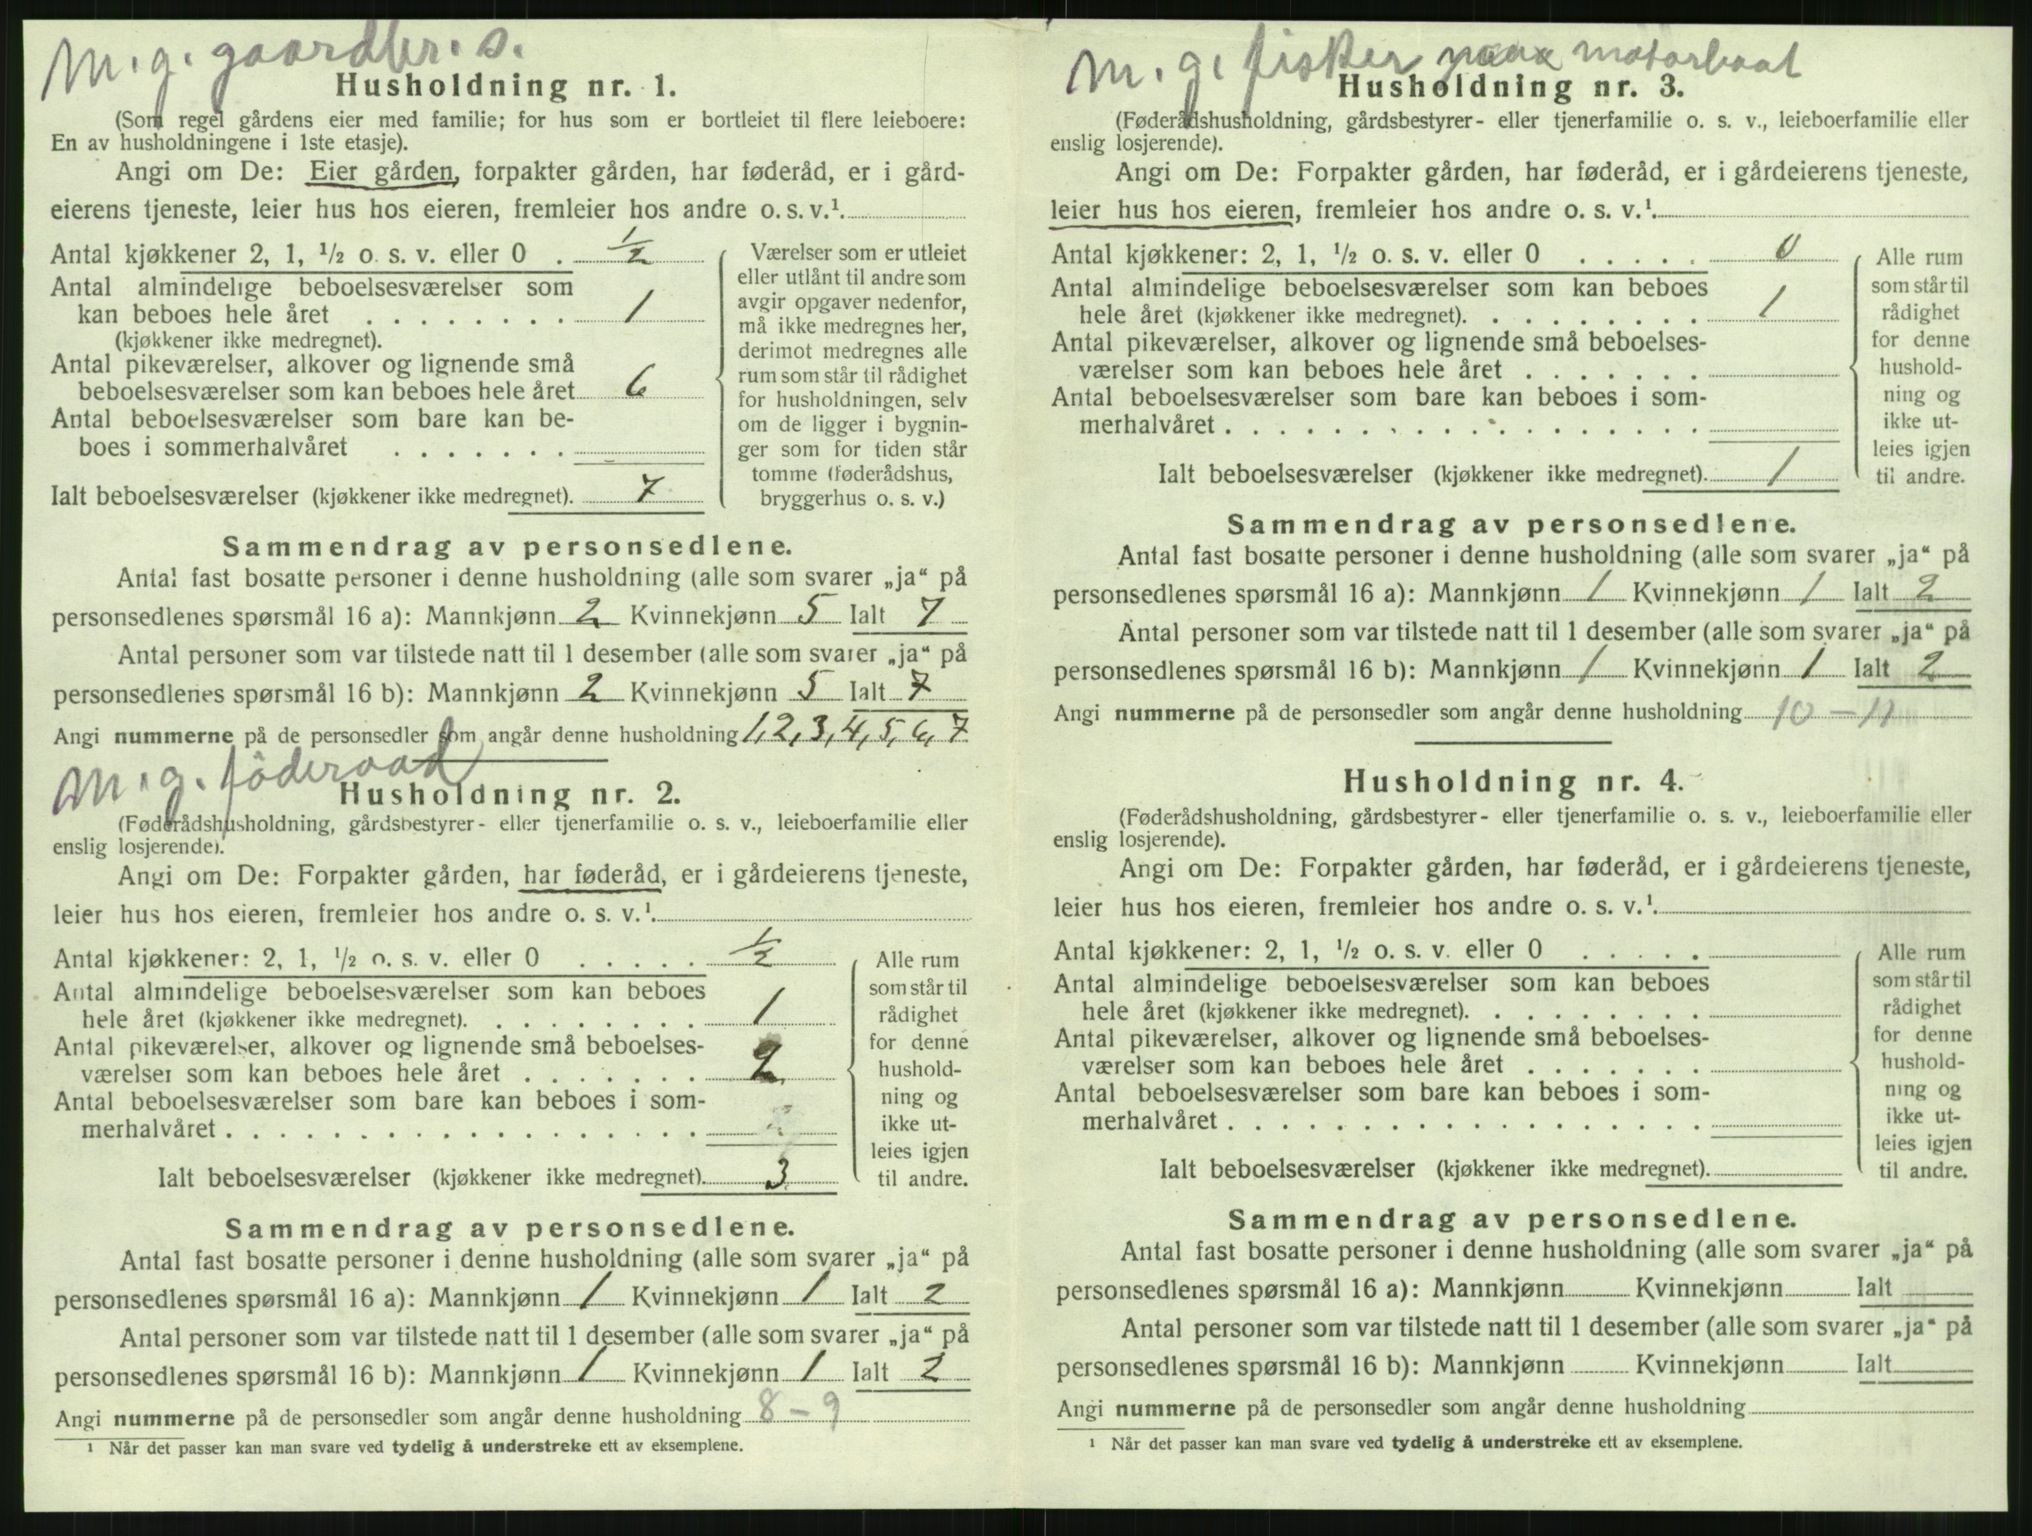 M. g. gaardbr. s.
Husholdning nr. 1.
(Som regel gårdens eier med familie; for hus som er bortleiet til flere leieboere:
En av husholdningene i 1ste etasje).
Angi om De: Eier gården, forpakter gården, har føderåd, er i gård-
eierens tjeneste, leier hus hos eieren, fremleier hos andre o. s. v.¹
Antal kjøkkener 2, 1, ½ o. s. v. eller 0 . ½
Antal almindelige beboelsesværelser som
kan beboes hele året . . . . . . . . 1
(kjøkkener ikke medregnet).
Antal pikeværelser, alkover og lignende små
beboelsesværelser som kan beboes hele året 6
Antal beboelsesværelser som bare kan be-
boes i sommerhalvåret . . . . . . .
Ialt beboelsesværelser (kjøkkener ikke medregnet). 7
Værelser som er utleiet
eller utlånt til andre som
avgir opgaver nedenfor,
må ikke medregnes her,
derimot medregnes alle
rum som står til rådighet
for husholdningen, selv
om de ligger i bygnin-
ger som for tiden står
tomme (føderådshus,
bryggerhus o. s. v.)
Sammendrag av personsedlene.
Antal fast bosatte personer i denne husholdning (alle som svarer „ja“ på
personsedlenes spørsmål 16 a): Mannkjønn 2 Kvinnekjønn 5 Ialt 7
Antal personer som var tilstede natt til 1 desember (alle som svarer „ja“ på
personsedlenes spørsmål 16 b): Mannkjønn 2 Kvinnekjønn 5 Ialt 7
Angi nummerne på de personsedler som angår denne husholdning 1, 2, 3, 4, 5, 6, 7
M. g. föderaad
Husholdning nr. 2.
(Føderådshusholdning, gårdsbestyrer- eller tjenerfamilie o. s. v., leieboerfamilie eller
enslig losjerende).
Angi om De: Forpakter gården, har føderåd, er i gårdeierens tjeneste,
leier hus hos eieren, fremleier hos andre o. s. v.¹
Antal kjøkkener: 2, 1, ½ o. s. v. eller 0 . . . . . ½
Antal almindelige beboelsesværelser som kan beboes
hele året (kjøkkener ikke medregnet). . . . . . . . . 1
Antal pikeværelser, alkover og lignende små beboelses-
værelser som kan beboes hele året . . . . . . . 2
Antal beboelsesværelser som bare kan beboes i som-
merhalvåret . . . . . . . . . . . . . . . . . .
Ialt beboelsesværelser (kjøkkener ikke medregnet). 3
Alle rum
som står til
rådighet
for denne
hushold-
ning og
ikke ut-
leies igjen
til andre.
Sammendrag av personsedlene.
Antal fast bosatte personer i denne husholdning (alle som svarer „ja“ på
personsedlenes spørsmål 16 a): Mannkjønn 1 Kvinnekjønn 1 Ialt 2
Antal personer som var tilstede natt til 1 desember (alle som svarer „ja“ på
personsedlenes spørsmål 16 b): Mannkjønn 1 Kvinnekjønn 1 Ialt 2
Angi nummerne på de personsedler som angår denne husholdning 8 - 9
¹ Når det passer kan man svare ved tydelig å understreke ett av eksemplene.
M. g. fisker motorbaat
Husholdning nr. 3.
(Føderådshusholdning, gårdsbestyrer- eller tjenerfamilie o. s. v., leieboerfamilie eller
enslig losjerende).
Angi om De: Forpakter gården, har føderåd, er i gårdeierens tjeneste,
leier hus hos eieren, fremleier hos andre o. s. v.¹
Antal kjøkkener: 2, 1, ½ o. s. v. eller 0 . . . . . 0
Antal almindelige beboelsesværelser som kan beboes
hele året (kjøkkener ikke medregnet). . . . . . . . . 1
Antal pikeværelser, alkover og lignende små beboelses-
værelser som kan beboes hele året . . . . . . .
Antal beboelsesværelser som bare kan beboes i som-
merhalvåret . . . . . . . . . . . . . . . . . .
Ialt beboelsesværelser (kjøkkener ikke medregnet). 1
Alle rum
som står til
rådighet
for denne
hushold-
ning og
ikke ut-
leies igjen
til andre.
Sammendrag av personsedlene.
Antal fast bosatte personer i denne husholdning (alle som svarer „ja“ på
personsedlenes spørsmål 16 a): Mannkjønn 1 Kvinnekjønn 1 Ialt 2
Antal personer som var tilstede natt til 1 desember (alle som svarer „ja“ på
personsedlenes spørsmål 16 b): Mannkjønn 1 Kvinnekjønn 1 Ialt 2
Angi nummerne på de personsedler som angår denne husholdning 10 - 11
Husholdning nr. 4.
(Føderådshusholdning, gårdsbestyrer- eller tjenerfamilie o. s. v., leieboerfamilie eller
enslig losjerende).
Angi om De: Forpakter gården, har føderåd, er i gårdeierens tjeneste,
leier hus hos eieren, fremleier hos andre o. s. v.¹
Antal kjøkkener: 2, 1, ½ o. s. v. eller 0 . . . . .
Antal almindelige beboelsesværelser som kan beboes
hele året (kjøkkener ikke medregnet). . . . . . . . .
Antal pikeværelser, alkover og lignende små beboelses-
værelser som kan beboes hele året . . . . . . .
Antal beboelsesværelser som bare kan beboes i som-
merhalvåret . . . . . . . . . . . . . . . . . .
Ialt beboelsesværelser (kjøkkener ikke medregnet).
Alle rum
som står til
rådighet
for denne
hushold-
ning og
ikke ut-
leies igjen
til andre.
Sammendrag av personsedlene.
Antal fast bosatte personer i denne husholdning (alle som svarer „ja“ på
personsedlenes spørsmål 16 a): Mannkjønn Kvinnekjønn Ialt
Antal personer som var tilstede natt til 1 desember (alle som svarer „ja“ på
personsedlenes spørsmål 16 b): Mannkjønn Kvinnekjønn Ialt
Angi nummerne på de personsedler som angår denne husholdning
¹ Når det passer kan man svare ved tydelig å understreke ett av eksemplene.